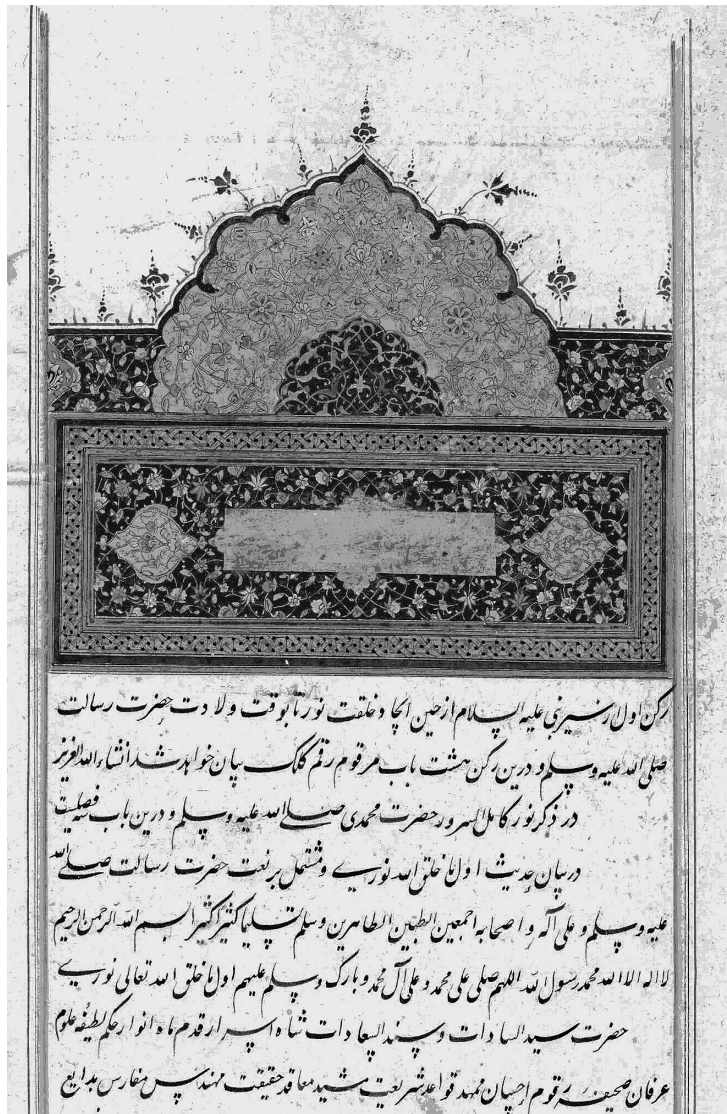 رکن اول از سیر نبی علیه السلام از حین ایجاد خلقت نور تا بوقت ولادت حضرت رسالت
صلی الله علیه وسلم و درین رکن هشت باب مرقوم رقم کلک بیان خواهد شد انشاء الله العزیز
در ذکر نور کامل السرور حضرت محمدی صلی الله علیه وسلم و درین باب فصلیست
در بیان حدیث اول ما خلق الله نوری و مشتمل بر نعت حضرت رسالت صلی الله
علیه وسلم و علی آله و اصحابه اجمعین الطیبین الطاهرین وسلم تسلیما کثیرا کثیرا بسم الله الرحمن الرحیم
لا اله الا الله محمد رسول الله اللهم صلی علی محمد و علی آل محمد و بارک وسلم علیهم اول ما خلق الله تعالی نوری
حضرت سید السادات و سند السعادات شاه اسرار قدم ماه انوار حکم لطیفه علوم
عرفان صحیفه رقوم احسان ممهد قواعد شریعت مشید معاقد حقیقت مهندس مفارس بدایع